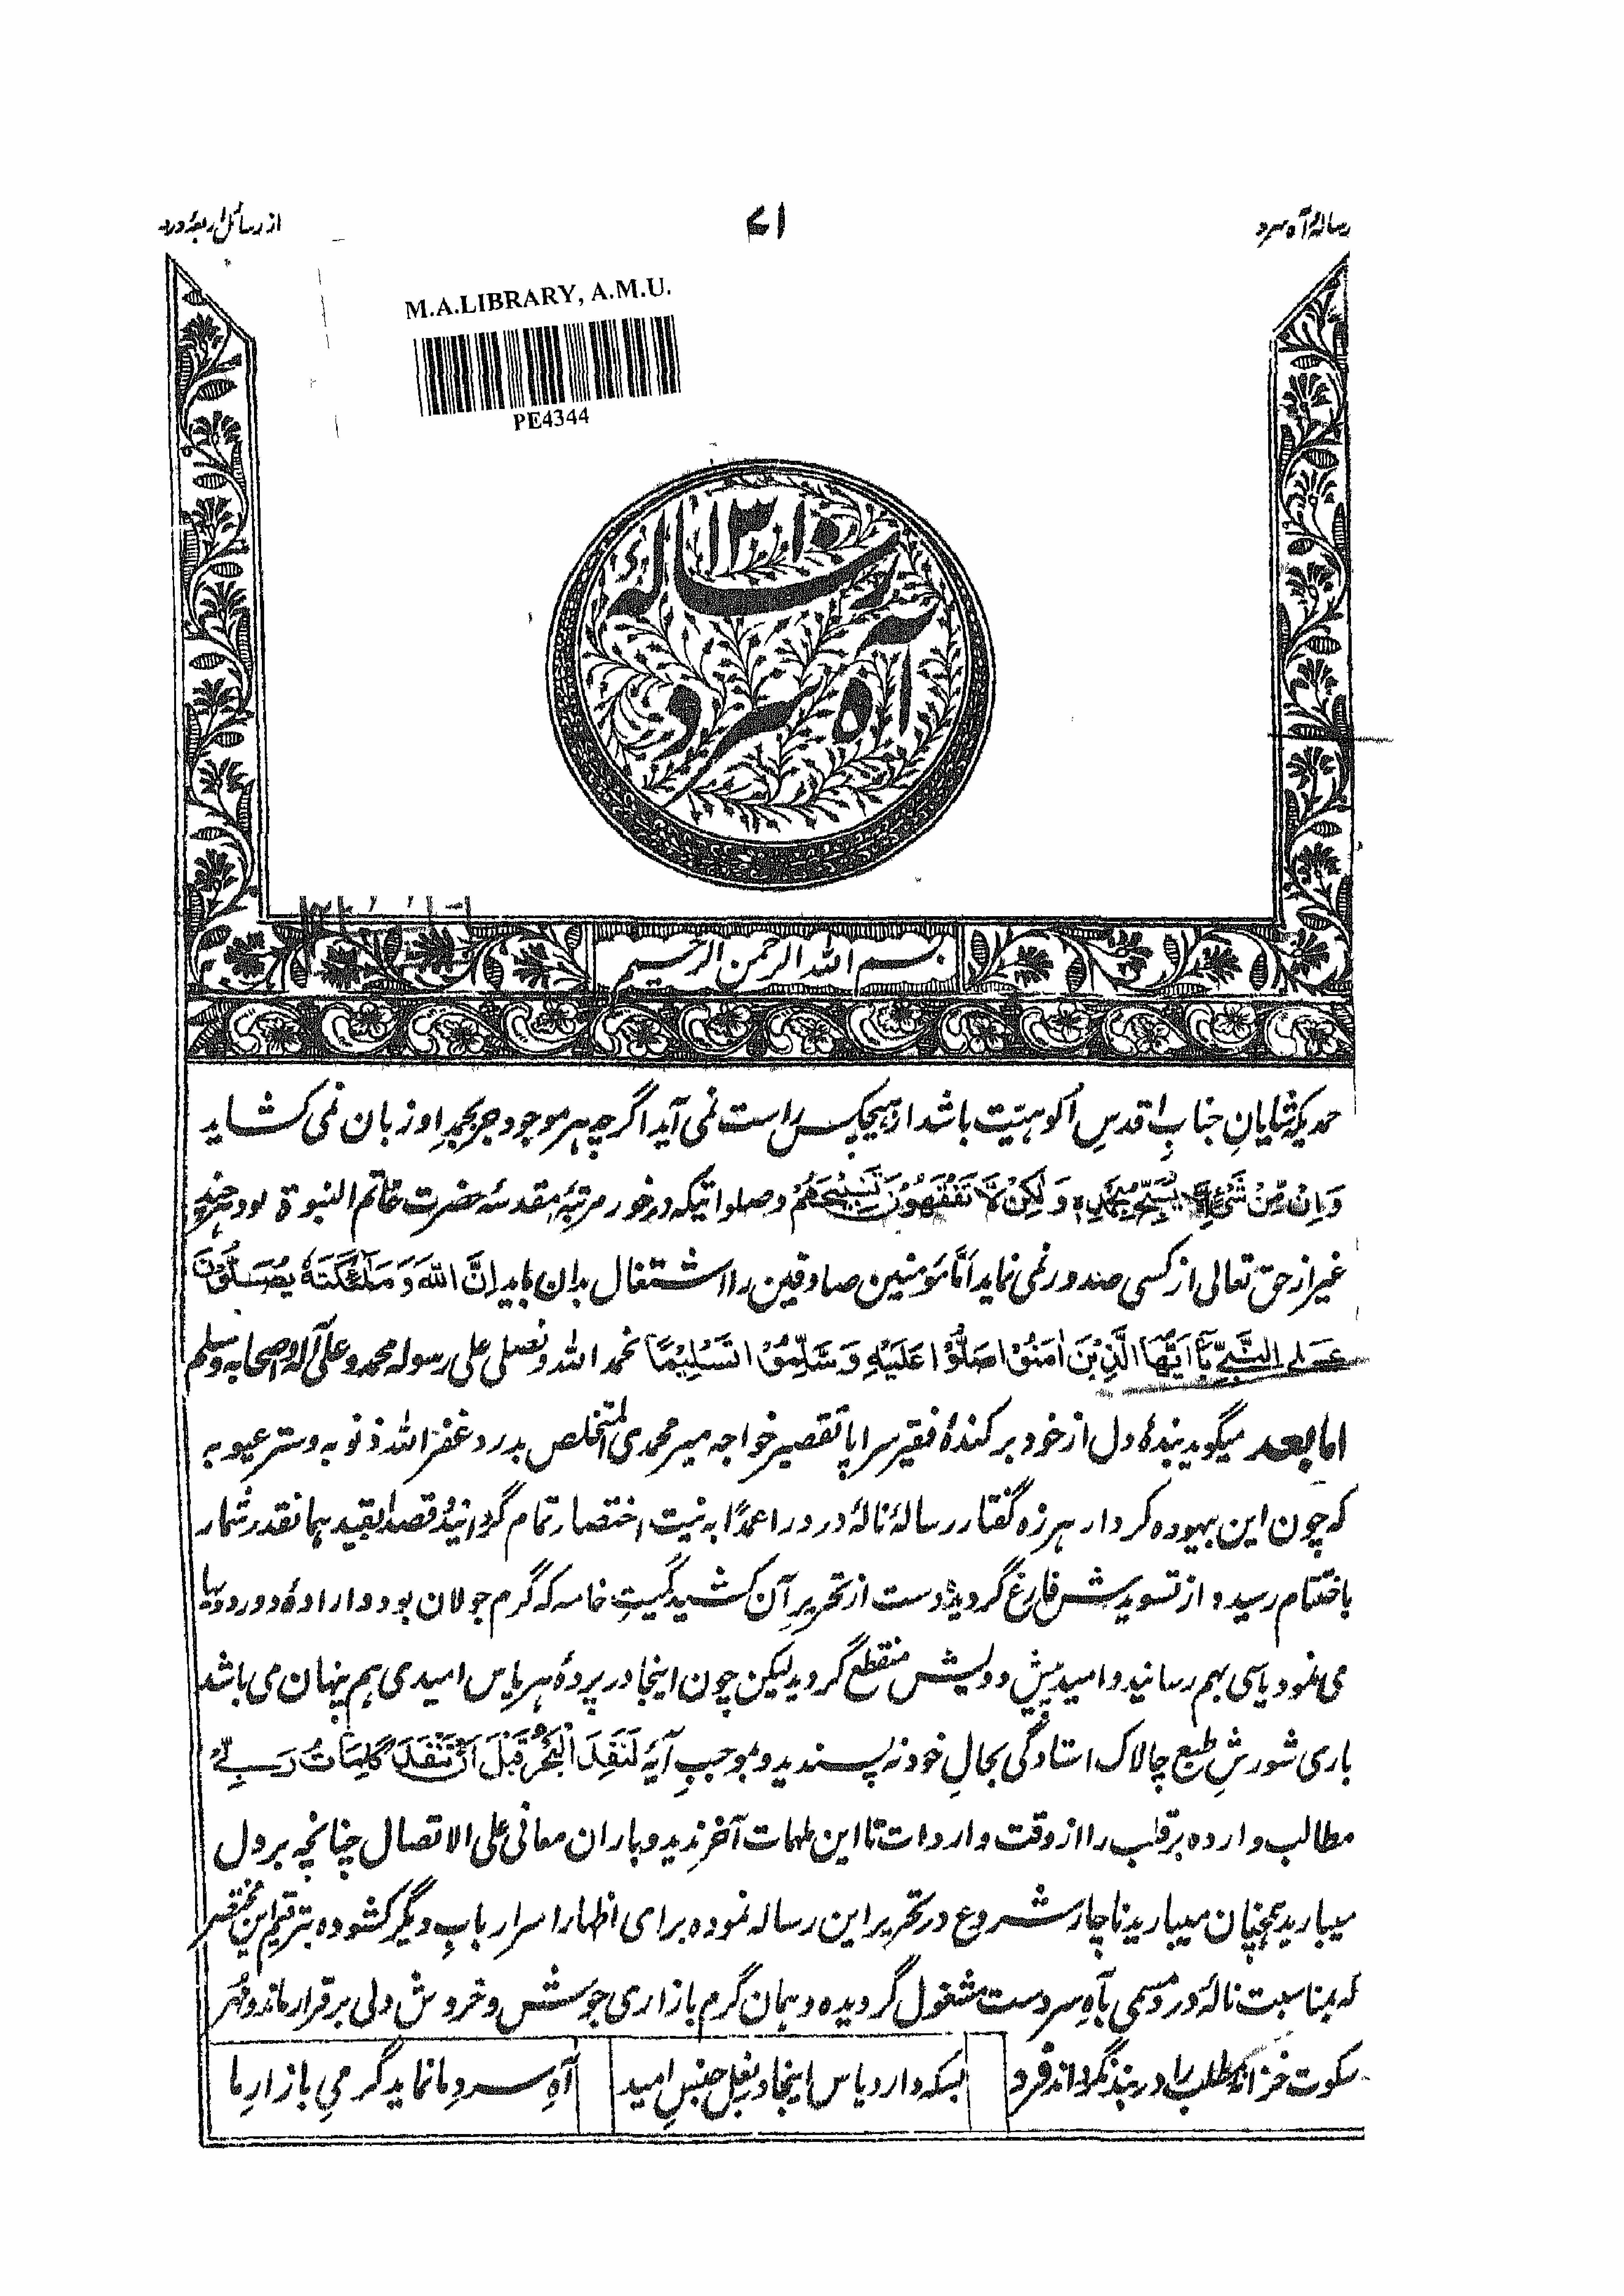 رسالۂ آہ سرد
۷۱
از رسائل اربعۂ درد
M.A.LIBRARY, A.M.U.
PE4344
۱۳۱۰
رسالۂ
آہ سرد
بسم اللہ الرحمن الرحیم
حمدیکہ شایانِ جنابِ اقدسِ اُلوہیّت باشد از ہیچکس راست نمی آید اگرچہ ہر موجود جز بحمدِ او زبان نمی کشاید
وَاِنْ مِّنْ شَیْءٍ اِلَّا یُسَبِّحُ بِحَمْدِہٖ وَلٰکِنْ لَّا تَفْقَهُوْنَ تَسْبِیْحَهُمْ وصلواتیکہ درخور مرتبۂ مقدسۂ حضرت خاتم النبوۃ بود ہرچند
غیر از حق تعالی از کسی صدور نمی نماید امَّا مؤمنین صادقین را اشتغال بدان باید اِنَّ اللّٰہَ وَمَلٰٓئِکَتَہٗ یُصَلُّوْنَ
عَلَی النَّبِیِّ یٰٓاَیُّهَا الَّذِیْنَ اٰمَنُوْا صَلُّوْا عَلَیْہِ وَسَلِّمُوْا تَسْلِیْمًا نحمد اللہ ونصلی علی رسولہ محمد وعلی آلہ واصحابہ وسلم
اما بعد میگوید بندۂ دل از خود برکندۂ فقیر سراپا تقصیر خواجہ میر محمدی المتخلص بدرد غفر اللہ ذنوبہ وستر عیوبہ
کہ چون این بیہودہ کردار ہرزہ گفتار رسالۂ نالۂ درد را عمدًا بہ نیت اختصار تمام گردانید و قصدًا بقید ہمانقدر شمار
باختتام رسید و از تسویدش فارغ گردید و دست از تحریر آن کشید کمیتِ خامہ کہ گرم جولان بود و ارادۂ دور دویہا
می نمود یاسی بہم رسانید و امید پیش دویش منقطع گردید لیکن چون اینجا در پردۂ ہر یاس امیدی ہم پنہان می باشد
باری شورشِ طبع چالاک استادگی بحالِ خود نہ پسندید و بموجبِ آیۂ لَنَفِدَ الْبَحْرُ قَبْلَ اَنْ تَنْفَدَ کَلِمَاتُ رَبِّیْ
مطالب واردہ بر قلب را از وقت واردات تا این ملہمات آخر ندید و باران معانی علی الاتصال چنانچہ بر دل
میبارید ہمچنان میبارید ناچار شروع در تحریر این رسالہ نمودہ برای اظہار اسرار بابِ دیگر کشودہ بترقیم این مختصر
کہ بمناسبت نالۂ درد مسمی بآہِ سرد ست مشغول گردیدہ و ہمان گرم بازاری جوشش و خروش دلی برقرار ماند و مہر
سکوت خزانۂ مطلب را در بند نگرداند فرد
بسکہ دارد یاس اینجا در بغل جنسِ امید
آہِ سردِ ما نماید گرمیِ بازارِ ما